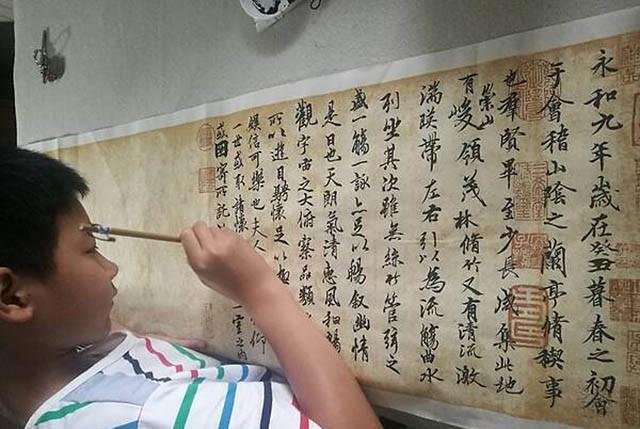 永和九年歲在癸丑暮春之初會
于會稽山陰之蘭亭脩稧事
也羣賢畢至少長咸集此地
有崇山峻領茂林脩竹又有清流激
湍暎帶左右引以為流觴曲水
列坐其次雖無絲竹管弦之
盛一觴一詠亦足以暢敘幽情
是日也天朗氣清惠風和暢
觀宇宙之大俯察品類
所以遊目騁懷足以極
娛信可樂也夫人 仰
一世或取諸懷 一室之內
或因寄所託